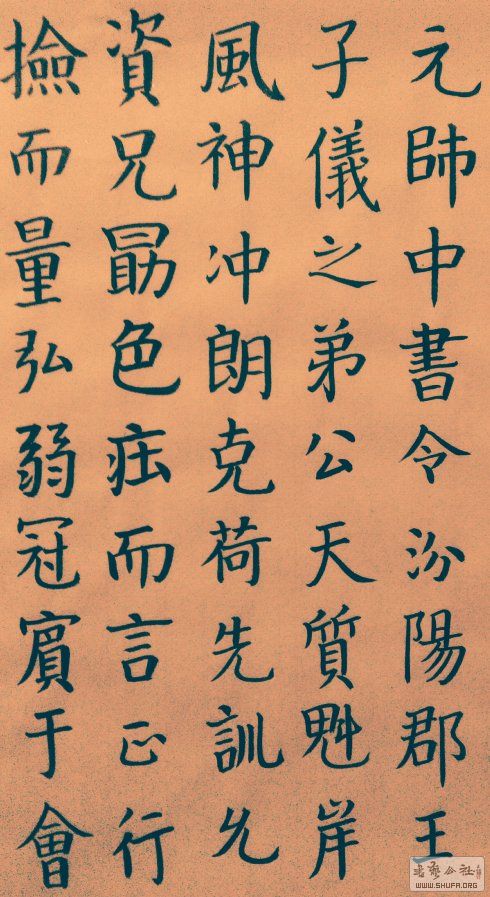 元帥中書令汾陽郡王
子儀之弟公天質魁岸
風神冲朗克荷先訓允
資兄勗色㽵而言正行
撿而量弘弱冠賓于會
書藝公社
WWW.SHUFA.ORG